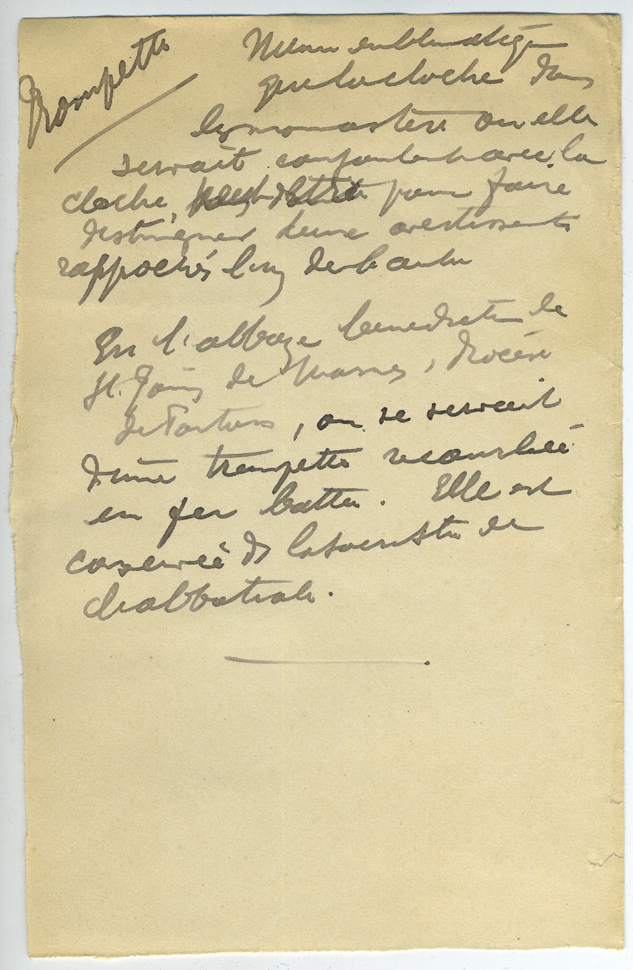 Trompette
Même emblématique
que la cloche dans
les monastères où elle
servait conjointement avec la
cloche, pour faire
distinguer deux avertissements
rapprochés l'un de l'autre
En l'abbaye bénédictine de
St. Jouin de Marnes, diocèse
de Poitiers, on se servait
d'une trompette recourbée
en fer battu. Elle est
conservée ds la sacristie de
l'abbatiale.